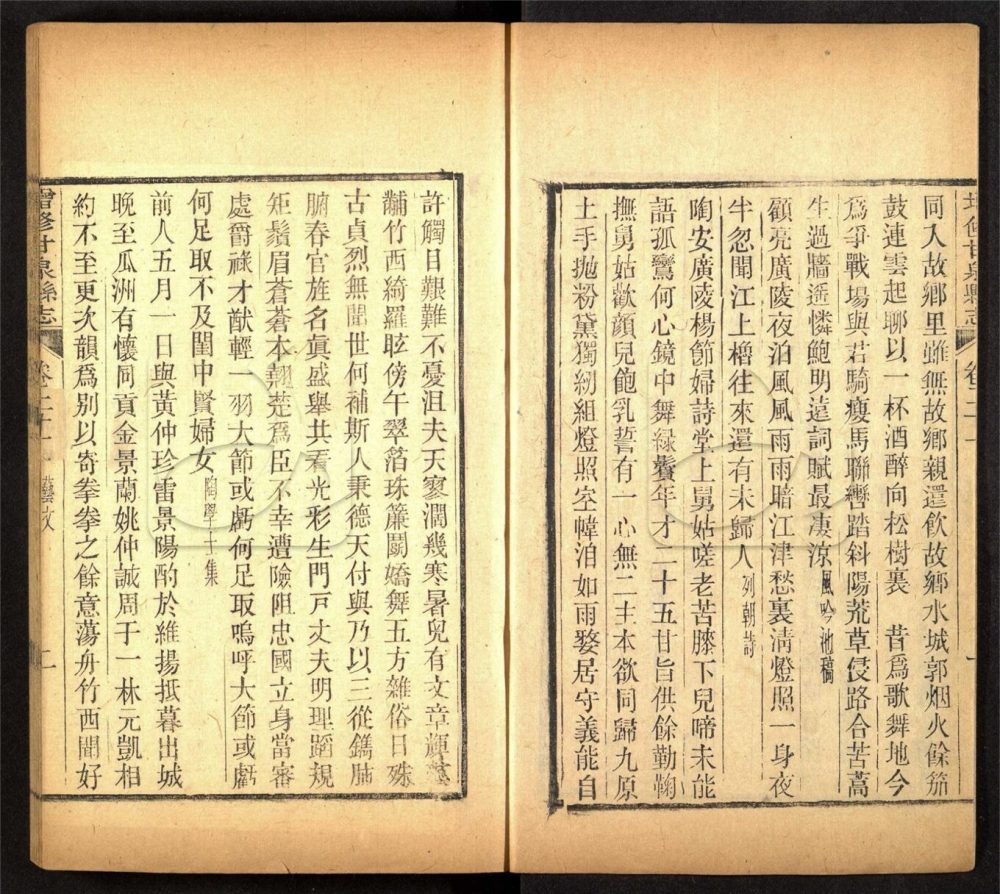 同入故鄉里雖無故鄉親還飲故鄉水城郭烟火餘笳
鼓連雲起聊以一杯酒醉向松樹裏　昔爲歌舞地今
爲爭戰場與若騎瘦馬聯轡踏斜陽荒草侵路合苦蒿
生過牆遥憐鮑明遠詞賦最淒涼風吟池稿
顧亮廣陵夜泊風風雨雨暗江津愁裏淸燈照一身夜
半忽聞江上櫓往來還有未歸人列朝詩
陶安廣陵楊節婦詩堂上舅姑嗟老苦膝下兒啼未能
語孤鸞何心鏡中舞綠鬢年才二十五甘旨供餘勤鞠
撫舅姑歡顏兒飽乳誓有一心無二主本欲同歸九原
土手拋粉黛獨紉組燈照空幃泊如雨嫠居守義能自
許觸目艱難不憂沮夫天寥濶幾寒暑兒有文章輝
黼竹西綺羅眩傍午翠箔珠簾鬭嬌舞五方雜俗日殊
古貞烈無聞世何補斯人秉德天付與乃以三從鐫肺
腑春官旌名眞盛舉共看光彩生門戸丈夫明理蹈規
矩鬚眉蒼蒼本翹楚爲臣不幸遭險阻忠國立身當審
處爵祿才猷輕一羽大節或虧何足取嗚呼大節或虧
何足取不及閨中賢婦女陶學士集
前人五月一日與黃仲珍雷景陽酌於維揚抵暮出城
晚至瓜洲有懷同貢金景蘭姚仲誠周于一林元凱相
約不至更次韻爲別以寄拳拳之餘意蕩舟竹西閒好
增修甘泉縣志
卷二十
藝文
二